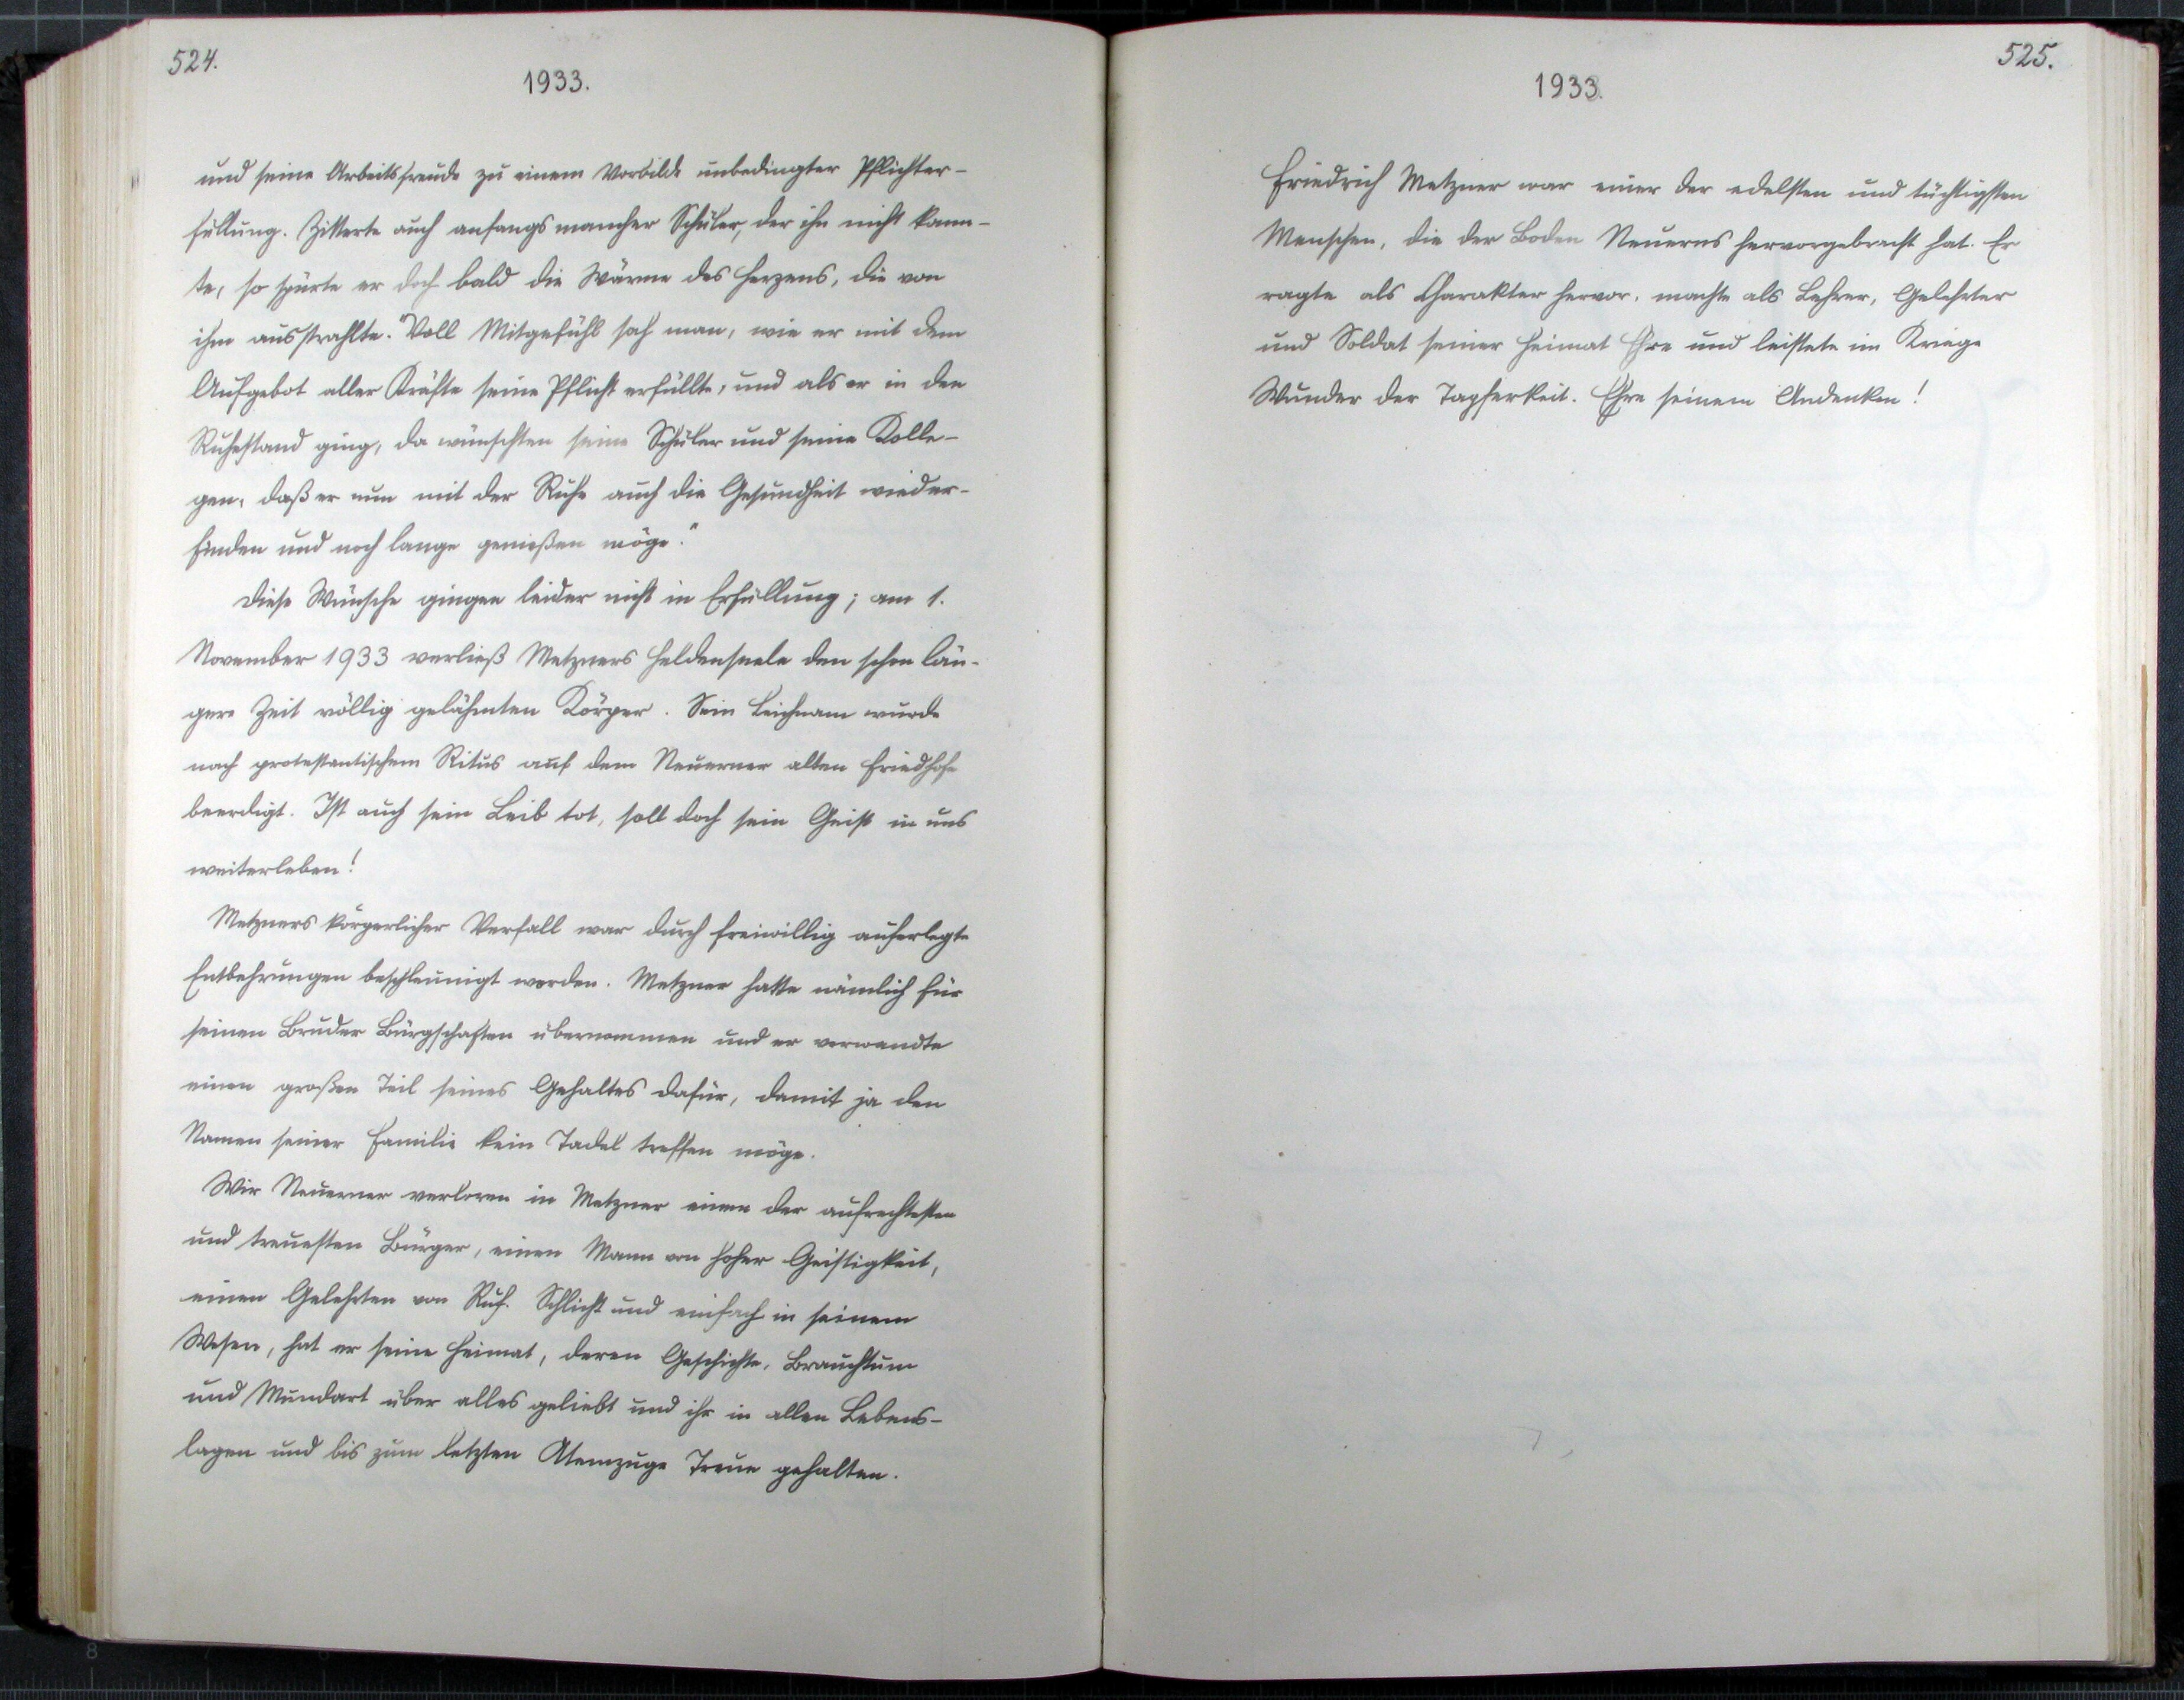 524.
1933.
und seine Arbeitsfreude zu einem Vorbilde unbedingter Pflichter-
füllung. Zitterte auch anfangs mancher Schüler, der ihn nicht kann-
te, so spürte er doch bald die Wärme des Herzens, die von
ihm ausstrahlte. "Voll Mitgefühl sah man, wie er mit dem
Aufgebot aller Kräfte seine Pflicht erfüllte, und als er in den
Ruhestand ging, da wünschten seine Schüler und seine Kolle-
gen, daß er nun mit der Ruhe auch die Gesundheit wieder-
finden und noch lange genießen möge."
Diese Wünsche gingen leider nicht in Erfüllung; am 1.
November 1933 verließ Metzners Heldenseele den schon län-
gere Zeit völlig gelähmten Körper. Sein Leichnam wurde
nach protestantischem Ritus auf dem Neuerner alten Friedhofe
beerdigt. Ist auch sein Leib tot, soll doch sein Geist in uns
weiterleben!
Metzners körperlicher Verfall war durch freiwillig auferlegte
Entbehrungen beschleunigt worden. Metzner hatte nämlich für
seinen Bruder Bürgschaften übernommen und er verwandte
einen großen Teil seines Gehaltes dafür, damit ja den
Namen seiner Familie kein Tadel treffen möge.
Wir Neuerner verloren in Metzner einen der aufrechtesten
und treuesten Bürger, einen Mann von hoher Geistigkeit,
einen Gelehrten von Ruf. Schlicht und einfach in seinem
Wesen, hat er seine Heimat, deren Geschichte, Brauchtum
und Mundart über alles geliebt und ihr in allen Lebens-
lagen und bis zum letzten Atemzuge Treue gehalten.
525.
1933.
Friedrich Metzner war einer der edelsten und tüchtigsten
Menschen, die der Boden Neuerns hervorgebracht hat. Er
ragte als Charakter hervor, machte als Lehrer, Gelehrter
und Soldat seiner Heimat Ehre und leistete im Kriege
Wunder der Tapferkeit. Ehre seinem Andenken!
8